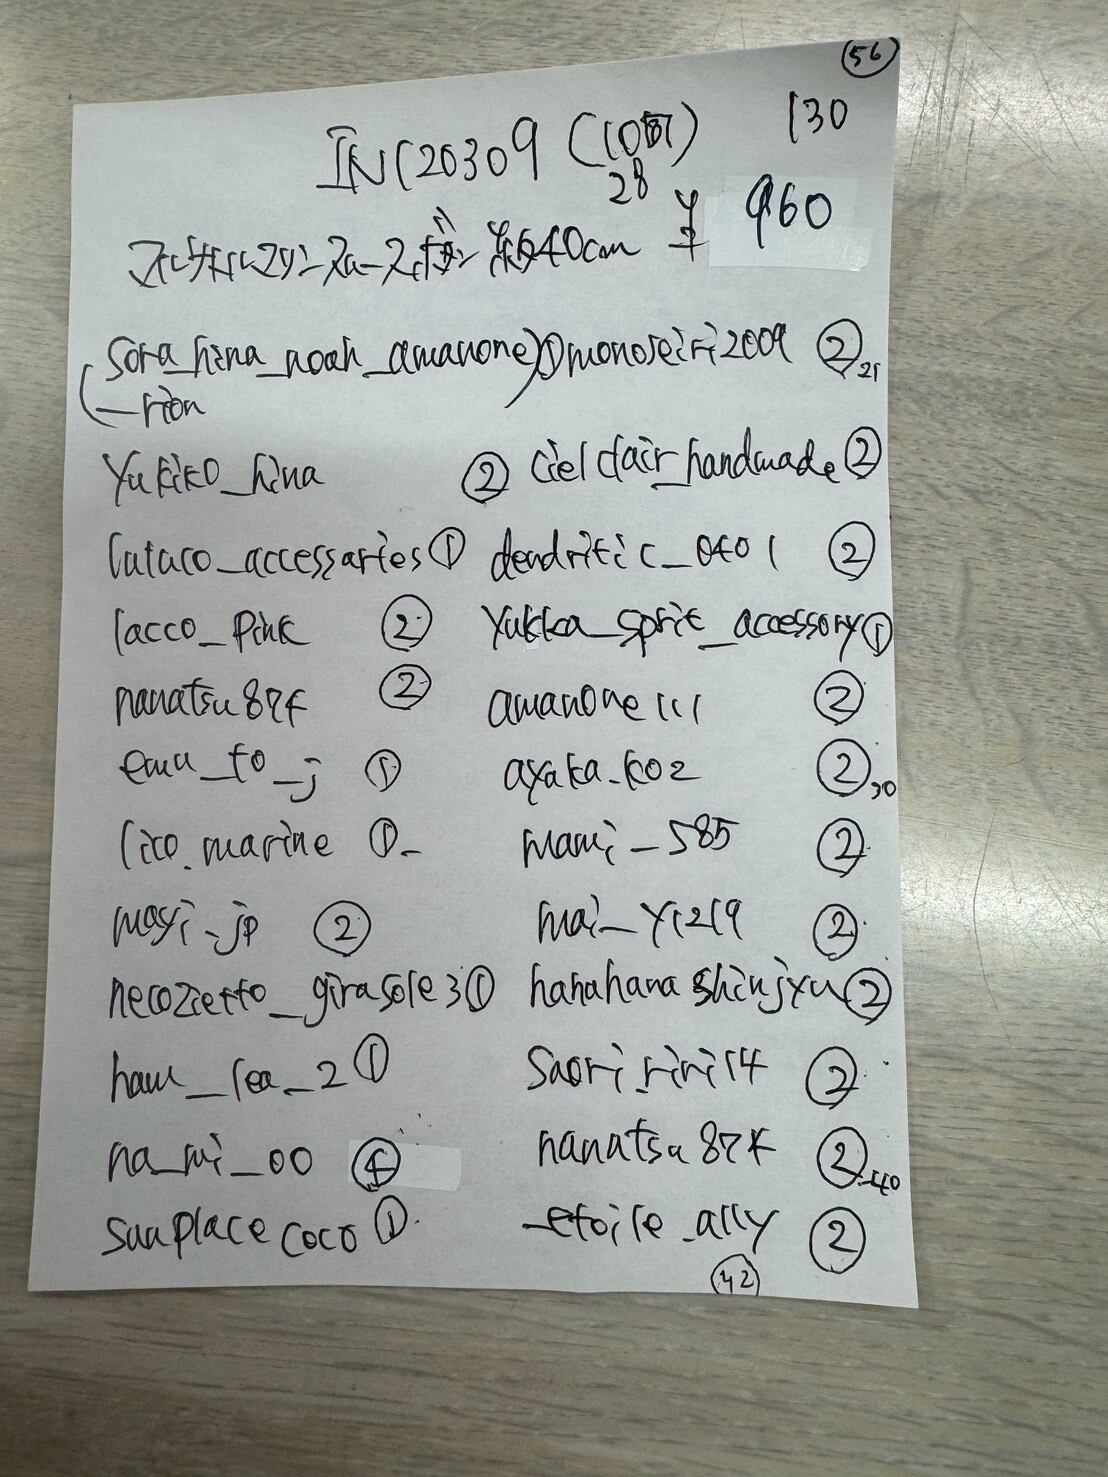 56
INC20309 (10 130
28
¥ 960
約40cm
sora_hina_noah_amanone ① monoseiri2009 ② 21
_rion
Yukiko_hina ② cielclair_handmade ②
lutuco_accessaries ① dendritic_0401 ②
lacco_pink ② yukka_sprit_accessory ①
nanatsu874 ② amanone111 ②
emu_to_j ① ayaka_k02 ② 30
lico.marine ① mami_585 ②
mayi_jp ② mai_y1219 ②
necozietto_girasole3 ① hanahanashinjyu ②
haw_lea_2 ① saori_riri14 ②
na_mi_00 ④ nanatsu874 ② 40
sunplacecoco ① _etoile_ally ②
42